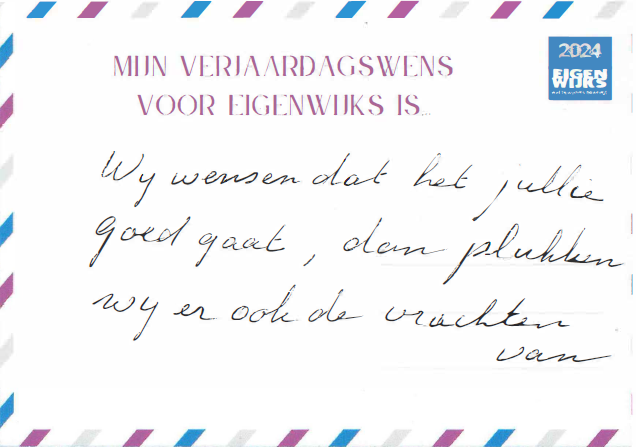 MIJN VERJAARDAGSWENS
VOOR EIGENWIJKS IS...
2024
EIGEN
WIJKS
Wy wensen dat het jullie
goed gaat, dan plukken
wy er ook de vrachten
van